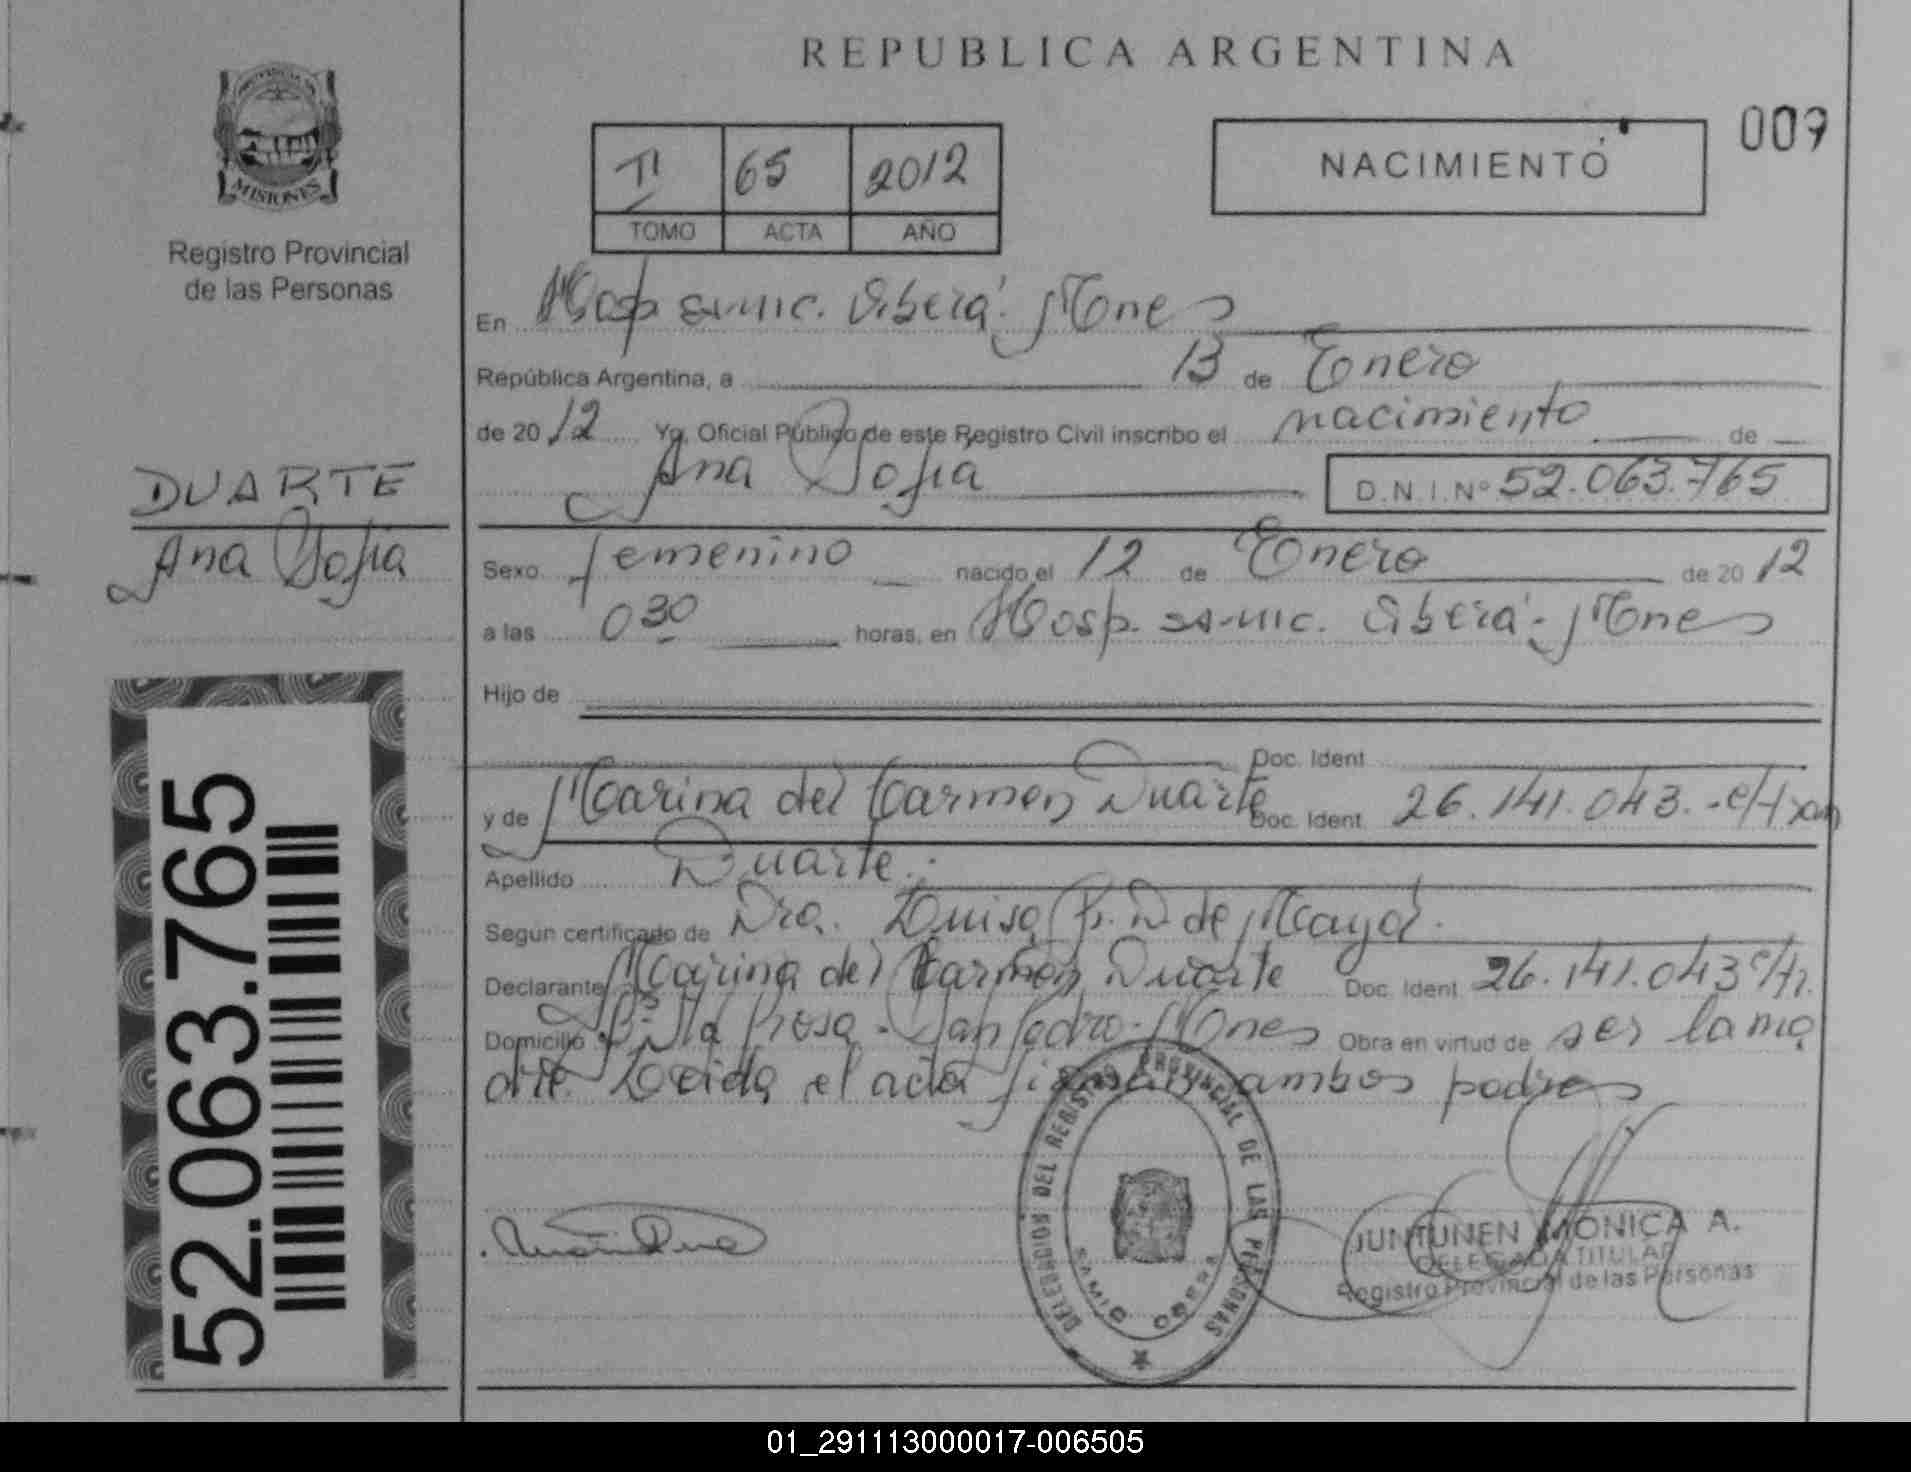 REPUBLICA ARGENTINA
009
NACIMIENTO
II 65 2012
TOMO ACTA AÑO
MISIONES
Registro Provincial
de las Personas
En Hosp samic. Oberá. Mones
República Argentina, a 13 de Enero
de 2012 Yo, Oficial Público de este Registro Civil inscribo el nacimiento de
Ana Sofia D.N.I. Nº 52.063.765
DUARTE
Ana Sofia
Sexo femenino nacido el 12 de Enero de 2012
a las 0 30 horas, en Hosp. samic. Oberá - Mones
Hijo de
Doc. Ident
y de Marina del Carmen Duarte Doc. Ident 26.141.043.-
Apellido Duarte.
Según certificado de Dra. Luisa de
Declarante Marina del Carmen Duarte Doc. Ident 26.141.043
Domicilio Rosa - San Pedro - Mones Obra en virtud de ser la ma
dre. Leida el acta firman ambos padres
52.063.765
DELEGACION DEL REGISTRO PROVINCIAL DE LAS PERSONAS
SAMIC OBERA
JUNTUNEN MONICA A.
DELEGADA TITULAR
Registro Provincial de las Personas
01_291113000017-006505